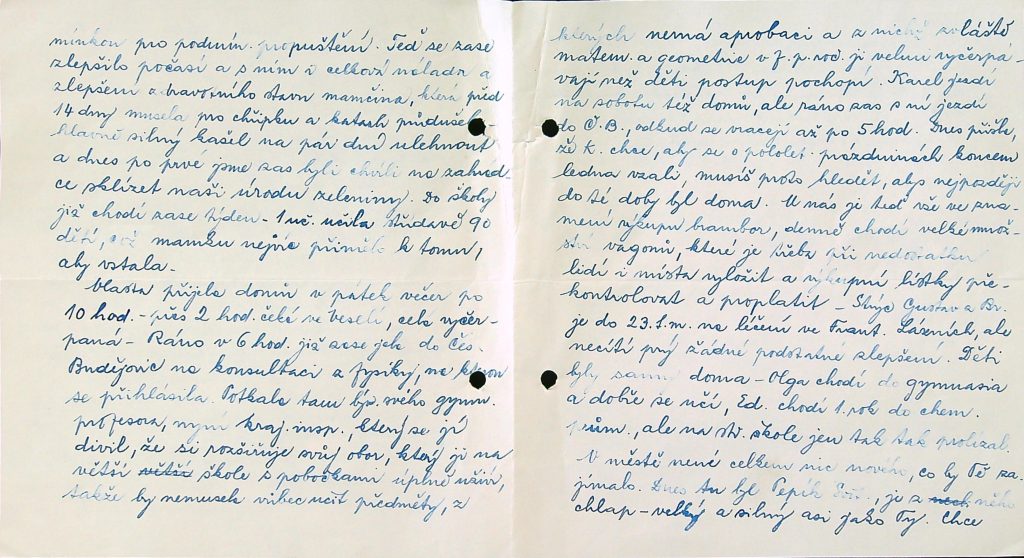 mínkou pro podmín. propuštění. Teď se zase
zlepšilo počasí a s ním i celková nálada a
zlepšení zdravotního stavu mamčina, která před
14 dny musela pro chřipku a katarh průdušek -
hlavně silný kašel na pár dnů ulehnout
a dnes po prvé jsme zas byli chvíli na zahrád-
ce sklízet naši úrodu zeleniny. Do školy
již chodí zase týden - 1 uč. učila střídavě 90
dětí, což mamku nejvíc přimělo k tomu,
aby vstala.
Vlasta přijela domů v pátek večer po
10 hod. - přes 2 hod. čeká ve Veselí, celá vyčer-
paná - Ráno v 6 hod. již zase jela do Čes.
Budějovic na konsultaci z fysiky, na kterou
se přihlásila. Potkala tam býv. svého gymn.
profesora, nyní kraj. insp., který se jí
divil, že si rozšiřuje svůj obor, který ji na
větší větší škole s pobočkami úplně uživí,
takže by nemusela vůbec učit předměty, z
kterých nemá aprobaci a z nichž zvláště
matem. a geometrie v 7. p. roč. ji velmi vyčerpá-
vají než děti postup pochopí. Karel jezdí
na sobotu též domů, ale ráno zas s ní jezdí
do Č. B., odkud se vracejí až po 5 hod. Dnes přišla,
že K. chce, aby se o pololet. prázdninách koncem
ledna vzali, musíš proto hledět, abys nejpozději
do té doby byl doma. U nás je teď vše ve zna-
mení výkupu brambor, denně chodí velké množ-
ství vagonů, které je třeba při nedostatku
lidí i místa vyložit a výkupní lístky pře-
kontrolovat a proplatit - Strýc Gustav z Br.
je do 23. t. m. na léčení ve Frant. Lázních, ale
necítí prý žádné podstatné zlepšení. Děti
byly samy doma - Olga chodí do gymnasia
a dobře se učí, Ed. chodí 1. rok do chem.
prům., ale na stř. škole jen tak tak prolézal.
V městě není celkem nic nového, co by Tě za-
jímalo. Dnes tu byl Pepík, je z něho
chlap - velký a silný asi jako Ty. Chce